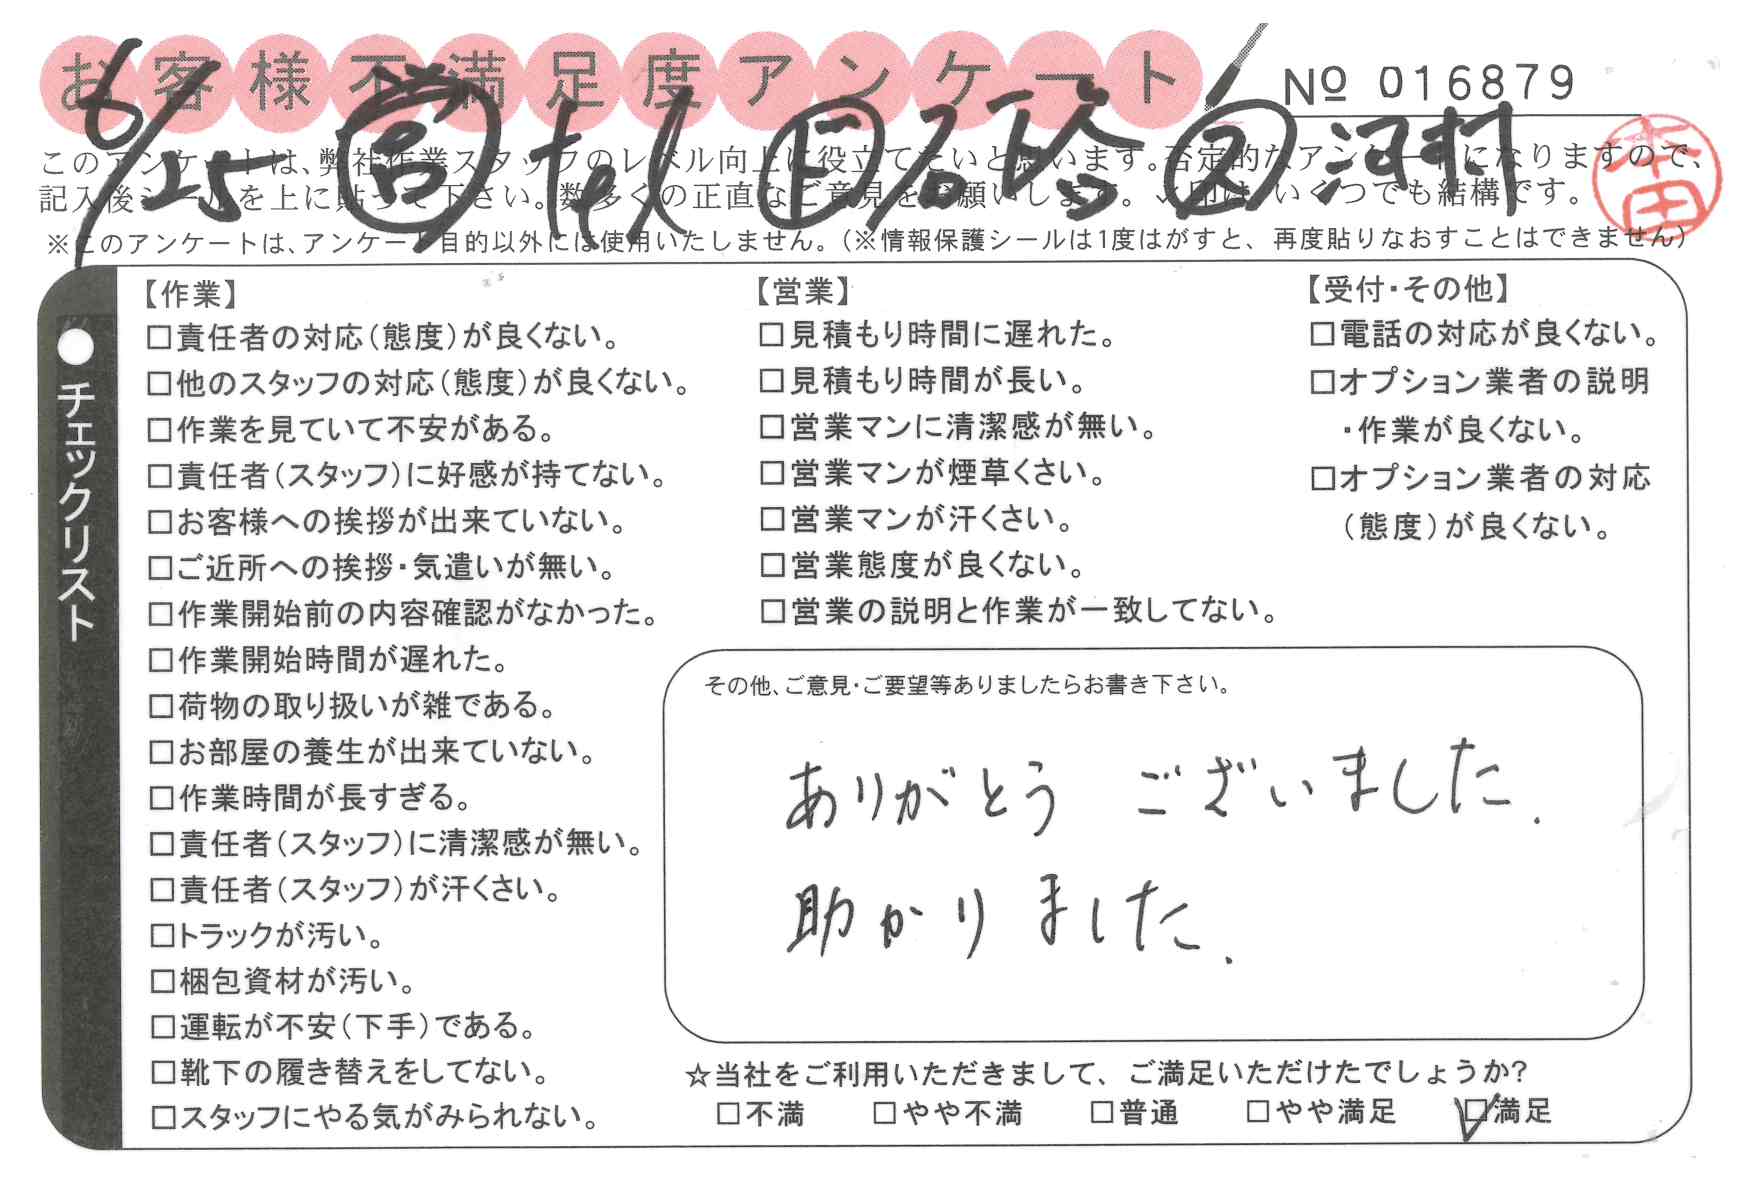 お客様不満足度アンケート
№ 016879
6/25 営 tel 石谷 河村
本田
このアンケートは、弊社作業スタッフのレベル向上に役立てたいと思います。否定的なアンケートになりますので、
記入後シールを上に貼って下さい。数多くの正直なご意見をお願いします。✓印は、いくつでも結構です。
※このアンケートは、アンケート目的以外には使用いたしません。（※情報保護シールは1度はがすと、再度貼りなおすことはできません）
●チェックリスト
【作業】
□責任者の対応（態度）が良くない。
□他のスタッフの対応（態度）が良くない。
□作業を見ていて不安がある。
□責任者（スタッフ）に好感が持てない。
□お客様への挨拶が出来ていない。
□ご近所への挨拶・気遣いが無い。
□作業開始前の内容確認がなかった。
□作業開始時間が遅れた。
□荷物の取り扱いが雑である。
□お部屋の養生が出来ていない。
□作業時間が長すぎる。
□責任者（スタッフ）に清潔感が無い。
□責任者（スタッフ）が汗くさい。
□トラックが汚い。
□梱包資材が汚い。
□運転が不安（下手）である。
□靴下の履き替えをしてない。
□スタッフにやる気がみられない。
【営業】
□見積もり時間に遅れた。
□見積もり時間が長い。
□営業マンに清潔感が無い。
□営業マンが煙草くさい。
□営業マンが汗くさい。
□営業態度が良くない。
□営業の説明と作業が一致してない。
【受付・その他】
□電話の対応が良くない。
□オプション業者の説明
・作業が良くない。
□オプション業者の対応
（態度）が良くない。
その他、ご意見・ご要望等ありましたらお書き下さい。
ありがとう ございました.
助かりました.
☆当社をご利用いただきまして、ご満足いただけたでしょうか?
□不満 □やや不満 □普通 □やや満足 ☑満足